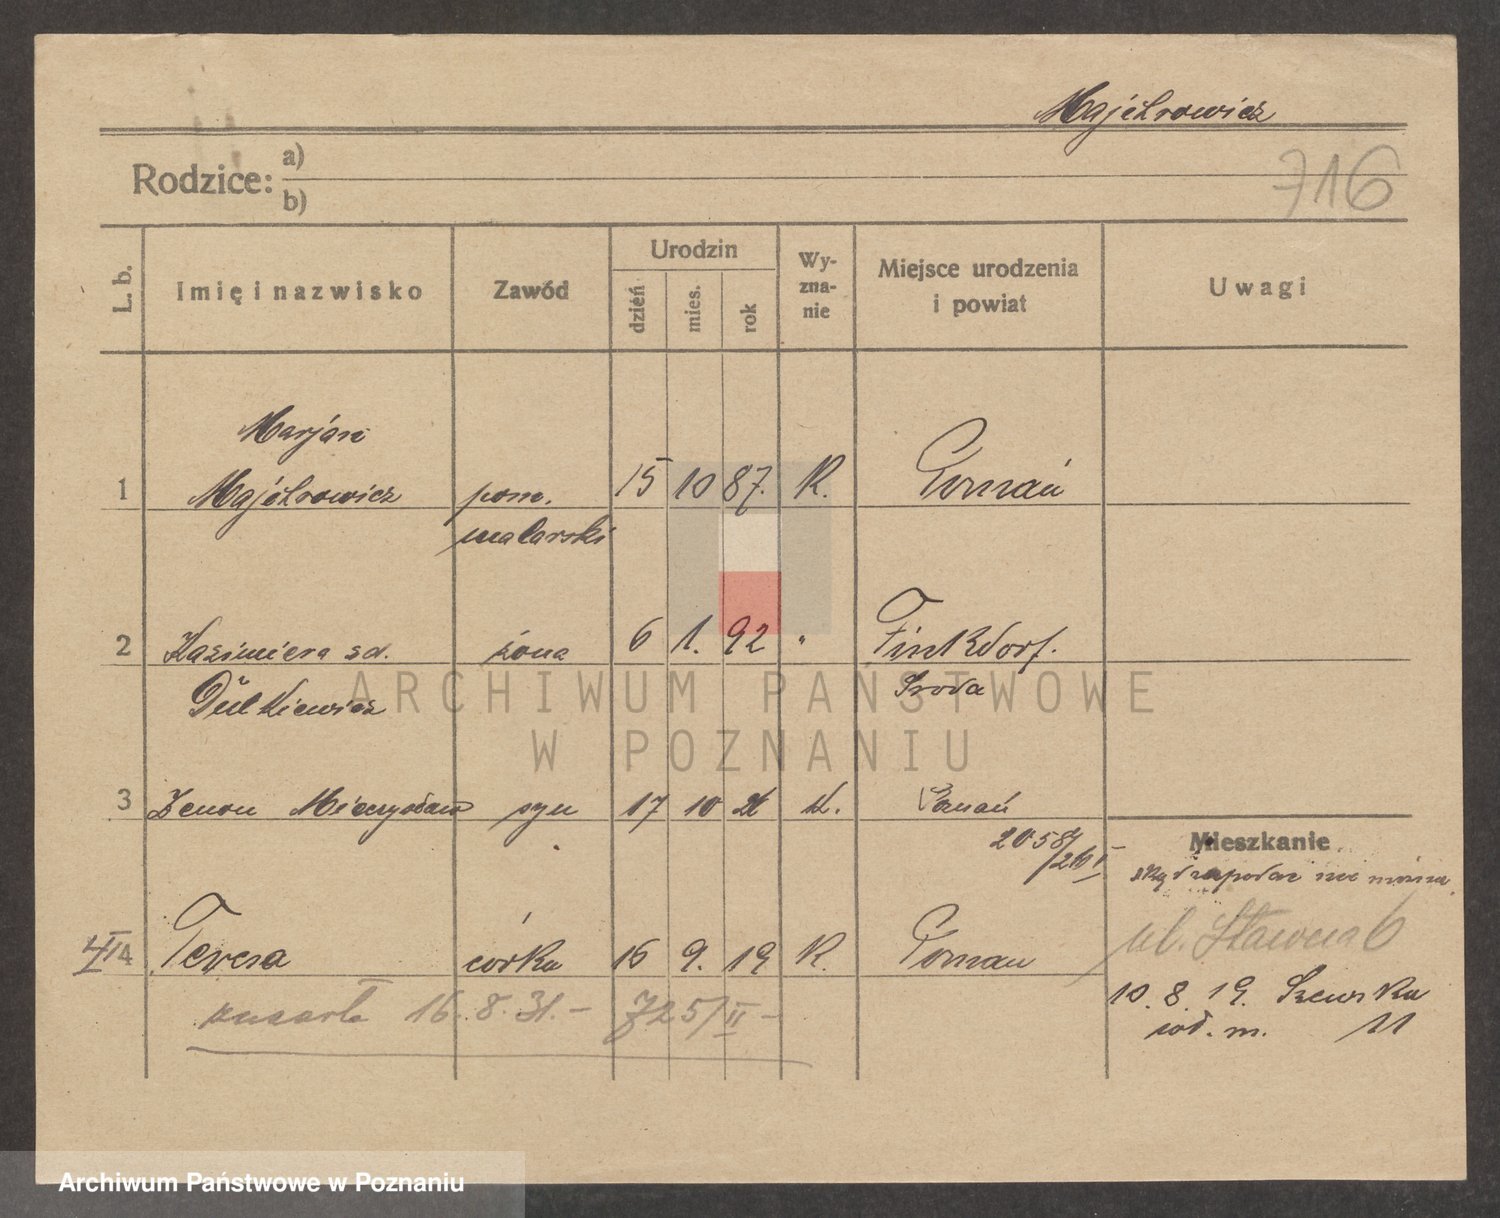 Majchrowicz
716
Rodzice: a)
b)
L. b. Imię i nazwisko Zawód Urodzin dzień mies. rok Wyznanie Miejsce urodzenia i powiat Uwagi
Marjan
1 Majchrowicz pom. 15 10 87. K. Poznań
malarski
2 Kazimiera zd. żona 6 1. 92 " Finkdorf.
Dulkiewicz Sroda
3 Zenon Mieczysław syn 17 10 K. Poznań
Mieszkanie
4 Teresa córka 16 9. 19 K. Poznan
ul. Stawna 6
zmarła 16. 8. 31. – 725/II –
10. 8. 19. Szewska
rod. m. 11
ARCHIWUM PAŃSTWOWE
W POZNANIU
Archiwum Państwowe w Poznaniu